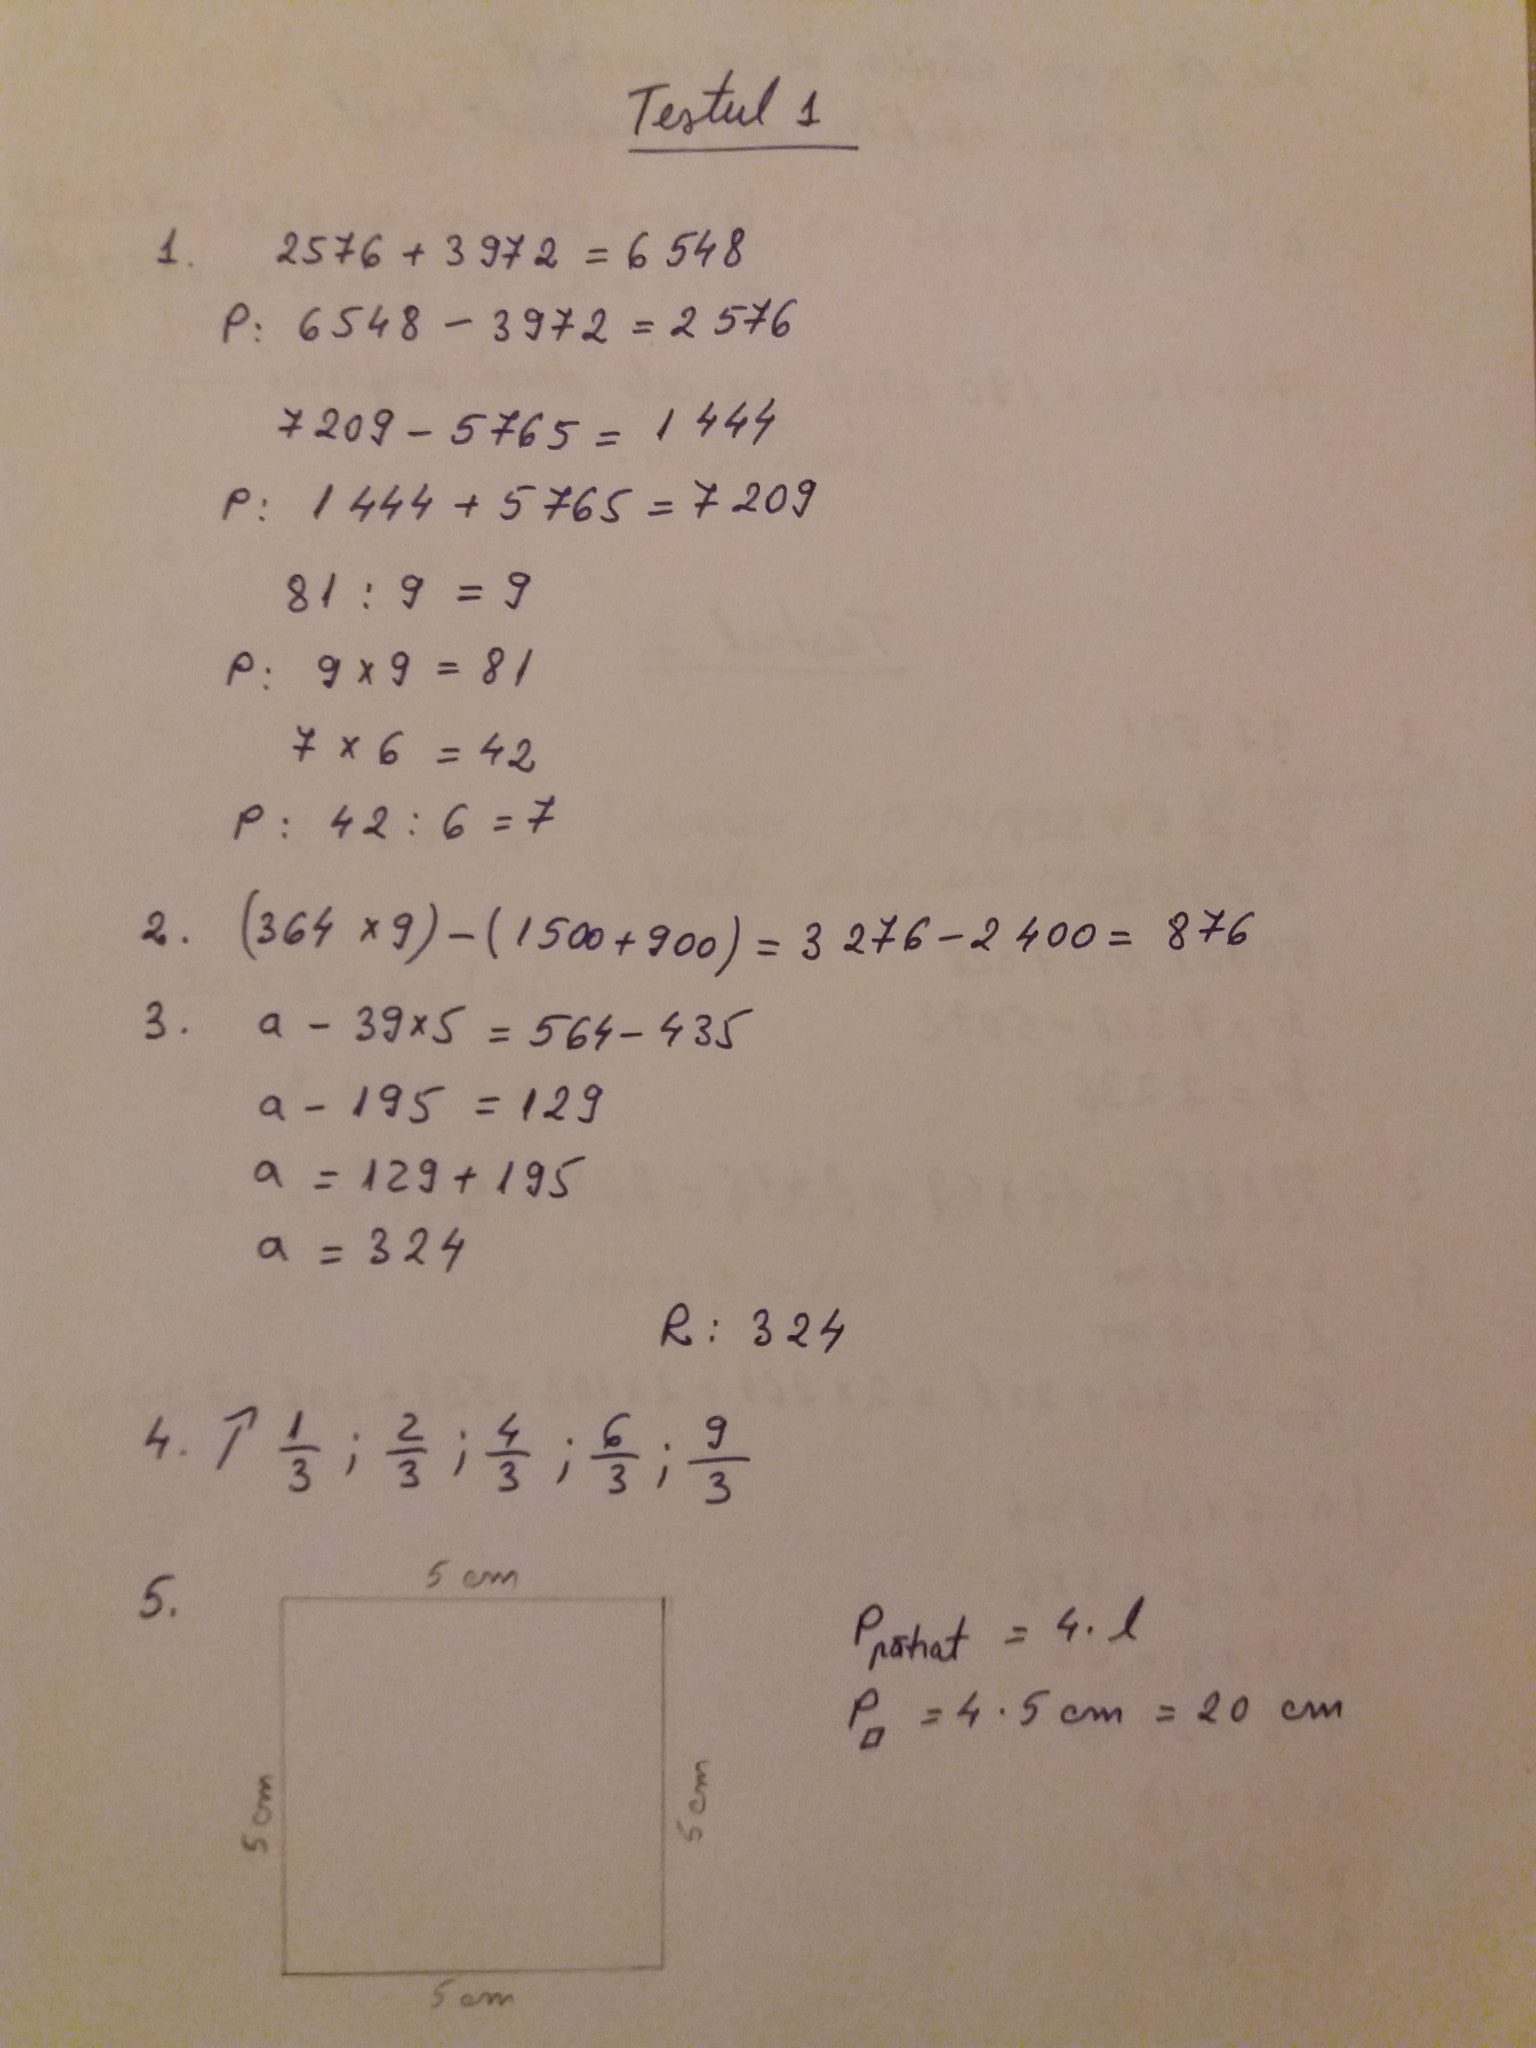 Testul 1
1. 2576 + 3972 = 6548
P: 6548 - 3972 = 2576
7209 - 5765 = 1444
P: 1444 + 5765 = 7209
81 : 9 = 9
P: 9 x 9 = 81
7 x 6 = 42
P: 42 : 6 = 7
2. (364 x 9) - (1500 + 900) = 3276 - 2400 = 876
3. a - 39 x 5 = 564 - 435
a - 195 = 129
a = 129 + 195
a = 324
R: 324
4. ↑ 1/3 ; 2/3 ; 4/3 ; 6/3 ; 9/3
5.
5 cm
5 cm
5 cm
5 cm
P pătrat = 4 · l
P□ = 4 · 5 cm = 20 cm